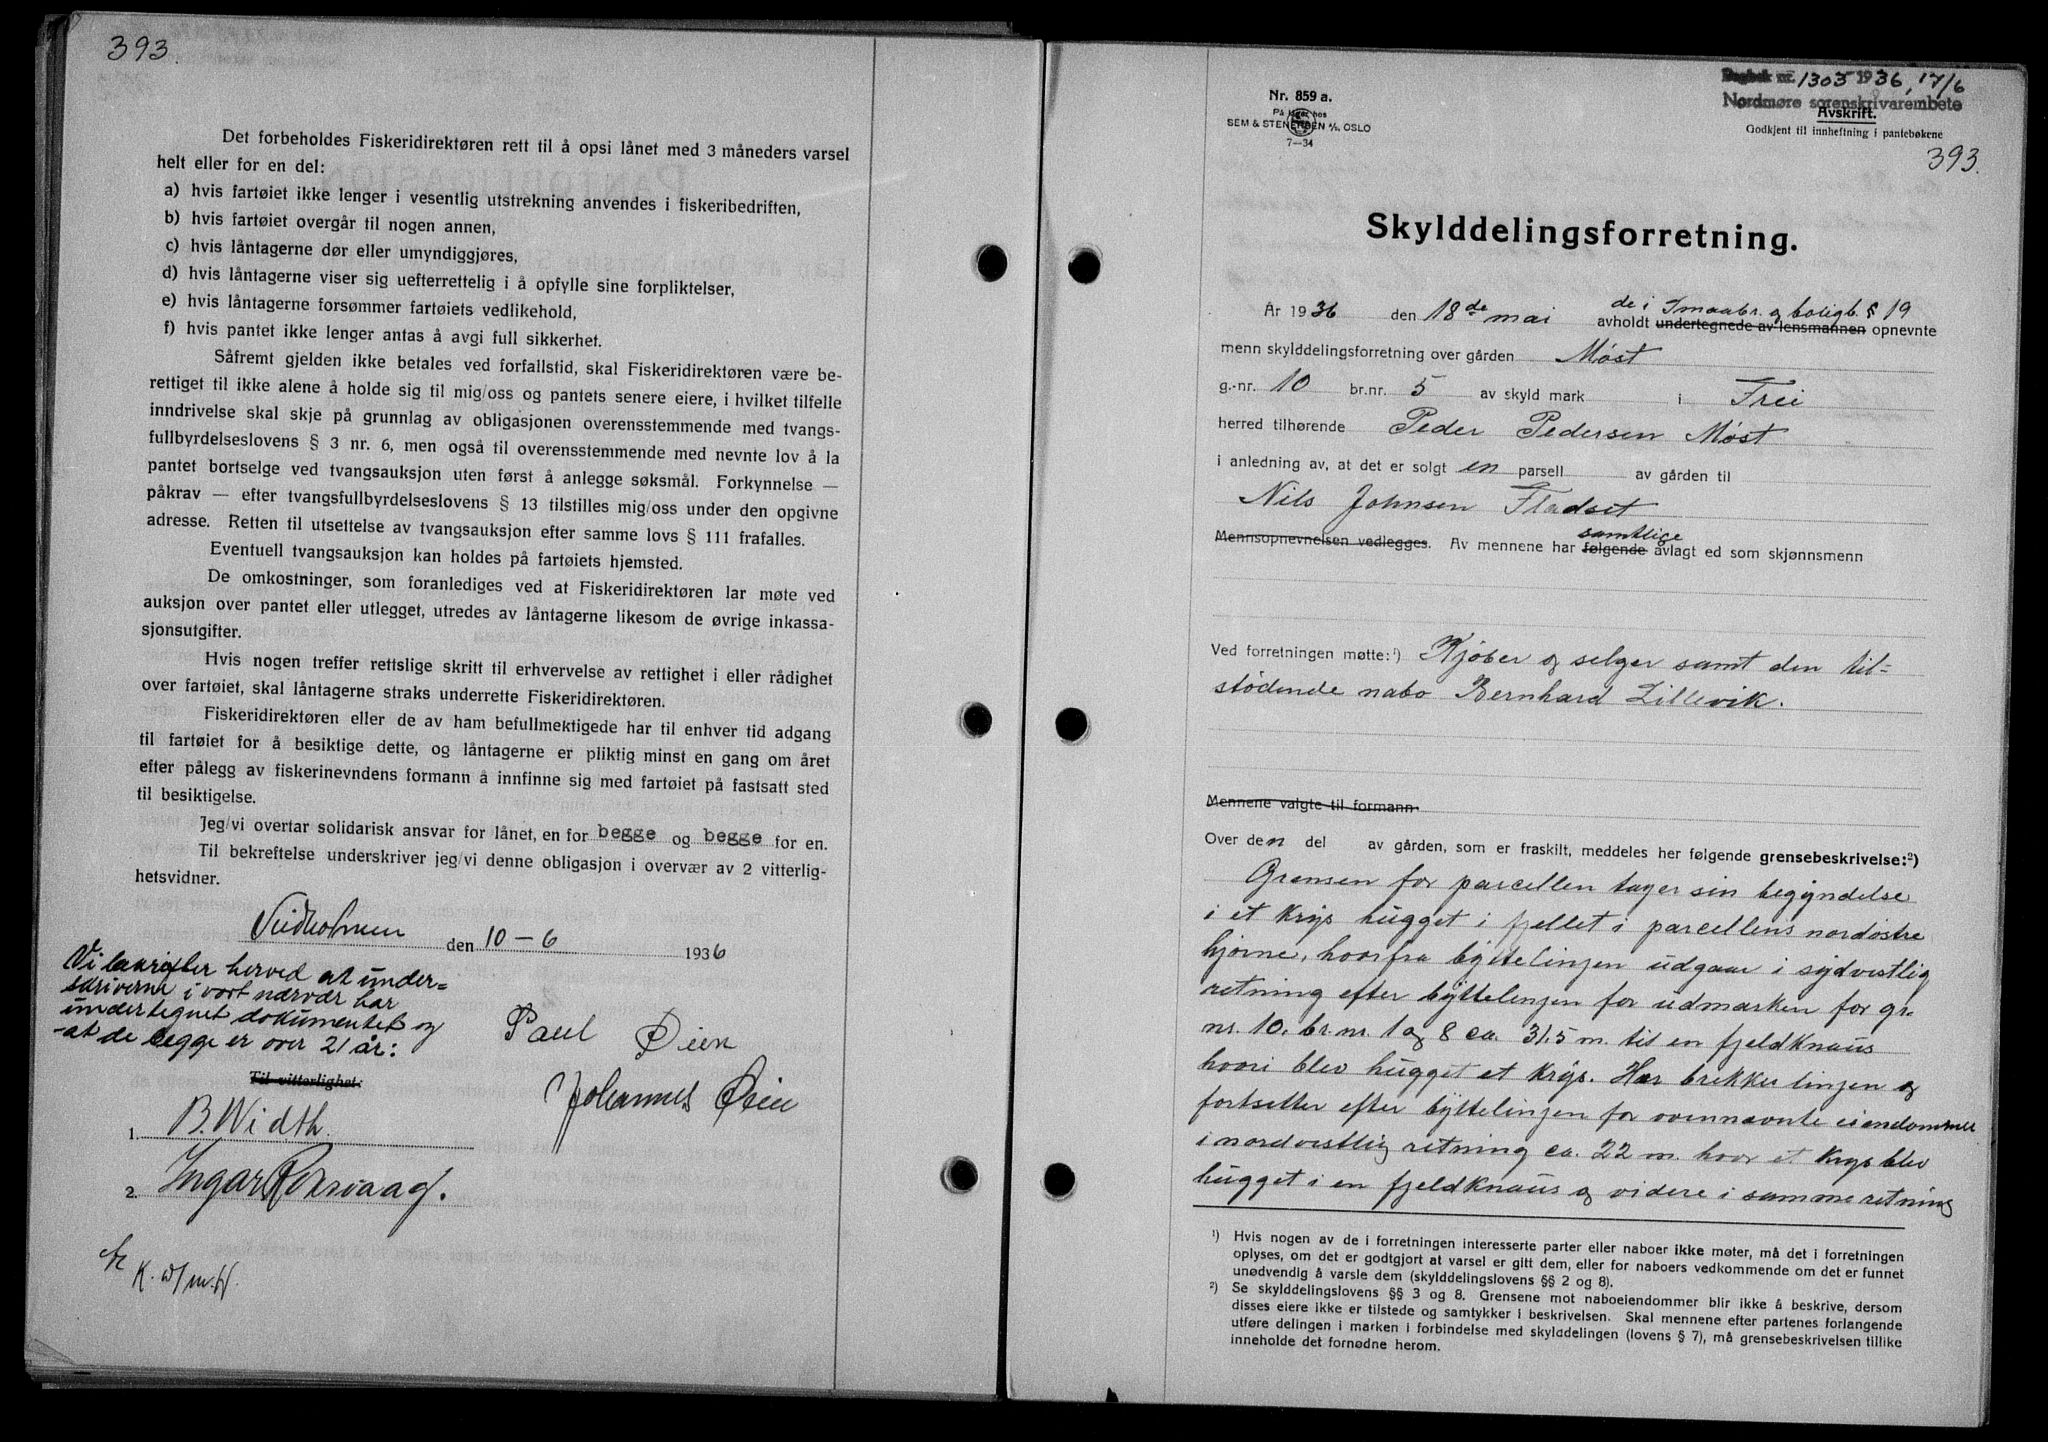 393.
Det forbeholdes Fiskeridirektøren rett til å opsi lånet med 3 måneders varsel
helt eller for en del:
a) hvis fartøiet ikke lenger i vesentlig utstrekning anvendes i fiskeribedriften,
b) hvis fartøiet overgår til nogen annen,
c) hvis låntagerne dør eller umyndiggjøres,
d) hvis låntagerne viser sig uefterrettelig i å opfylle sine forpliktelser,
e) hvis låntagerne forsømmer fartøiets vedlikehold,
f) hvis pantet ikke lenger antas å avgi full sikkerhet.
Såfremt gjelden ikke betales ved forfallstid, skal Fiskeridirektøren være be-
rettiget til ikke alene å holde sig til mig/oss og pantets senere eiere, i hvilket tilfelle
inndrivelse skal skje på grunnlag av obligasjonen overensstemmende med tvangs-
fullbyrdelseslovens § 3 nr. 6, men også til overensstemmende med nevnte lov å la
pantet bortselge ved tvangsauksjon uten først å anlegge søksmål. Forkynnelse —
påkrav — efter tvangsfullbyrdelseslovens § 13 tilstilles mig/oss under den opgivne
adresse. Retten til utsettelse av tvangsauksjon efter samme lovs § 111 frafalles.
Eventuell tvangsauksjon kan holdes på fartøiets hjemsted.
De omkostninger, som foranlediges ved at Fiskeridirektøren lar møte ved
auksjon over pantet eller utlegget, utredes av låntagerne likesom de øvrige inkassa-
sjonsutgifter.
Hvis nogen treffer rettslige skritt til erhvervelse av rettighet i eller rådighet
over fartøiet, skal låntagerne straks underrette Fiskeridirektøren.
Fiskeridirektøren eller de av ham befullmektigede har til enhver tid adgang
til fartøiet for å besiktige dette, og låntagerne er pliktig minst en gang om året
efter pålegg av fiskerinevndens formann å innfinne sig med fartøiet på fastsatt sted
til besiktigelse.
Jeg/vi overtar solidarisk ansvar for lånet, en for begge og begge for en.
Til bekreftelse underskriver jeg/vi denne obligasjon i overvær av 2 vitterlig-
hetsvidner.
den 10-6 1936
Vi bekrefter herved at under-
skriverne i vort nærvær har
undertegnet dokumentet og
-at de begge er over 21 år:
Paul Øien
Til vitterlighet:
Johannes Øien
1. B. Width.
2. Ingar Roksvaag.
Dagbok nr. 1303 1936, 17/6
Nordmøre sorenskrivarembete
Avskrift.
Godkjent til innheftning i pantebøkene
393.
Nr. 859 a.
På lager hos
SEM & STENERSEN A/S, OSLO
7—34
Skylddelingsforretning.
de i Smaabr. og boligb. § 19
År 1936 den 18de mai avholdt undertegnede av lensmannen opnevnte
menn skylddelingsforretning over gården Møst
g.-nr. 10 br.nr. 5 av skyld mark i Frei
herred tilhørende Peder Pedersen Møst
i anledning av, at det er solgt en parsell av gården til
Nils Johnsen Fladset
samtlige
Mennsopnevnelsen vedlegges. Av mennene har følgende avlagt ed som skjønnsmenn
Ved forretningen møtte:¹) Kjøber og selger samt den til-
stødende nabo Bernhard Lillevik.
Mennene valgte til formann
Over den del av gården, som er fraskilt, meddeles her følgende grensebeskrivelse:²)
Grensen for parcellen tager sin begyndelse
i et krys hugget i fjellet i parcellens nordøstre
hjørne, hvorfra byttelinjen udgaar i sydvestlig
retning efter byttelinjen for udmarken for gr.
nr. 10, br. nr. 1 og 8 ca. 31,5 m. til en fjeldknaus
hvori blev hugget et krys. Her brekker linjen og
fortsetter efter byttelinjen for ovennævnte eiendommer
i nordvestlig retning ca. 22 m. hvor et krys blev
hugget i en fjeldknaus og videre i samme retning
¹) Hvis nogen av de i forretningen interesserte parter eller naboer ikke møter, må det i forretningen
oplyses, om det er godtgjort at varsel er gitt dem, eller for naboers vedkommende om det er funnet
unødvendig å varsle dem (skylddelingslovens §§ 2 og 8).
²) Se skylddelingslovens §§ 3 og 8. Grensene mot naboeiendommer blir ikke å beskrive, dersom
disses eiere ikke er tilstede og samtykker i beskrivelsen. Skal mennene efter partenes forlangende
utføre delingen i marken i forbindelse med skylddelingen (lovens § 7), må grensebeskrivelsen tillike
inneholde det fornødne herom.